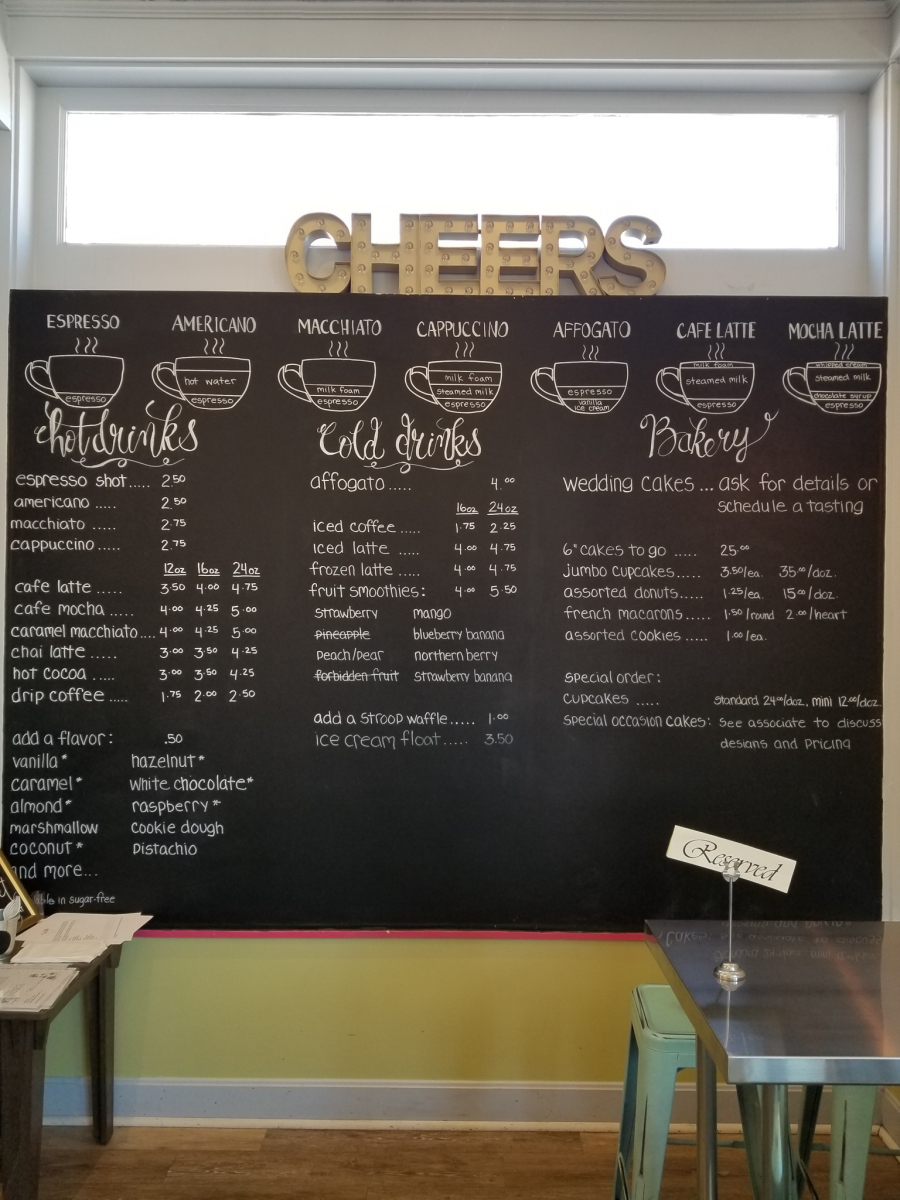 CHEERS
ESPRESSO
espresso
AMERICANO
hot water
espresso
MACCHIATO
milk foam
espresso
CAPPUCCINO
milk foam
steamed milk
espresso
AFFOGATO
espresso
vanilla
ice cream
CAFE LATTE
milk foam
steamed milk
espresso
MOCHA LATTE
whipped cream
steamed milk
chocolate syrup
espresso
hot drinks
espresso shot..... 2.50
americano ..... 2.50
macchiato ..... 2.75
cappuccino ..... 2.75
12oz 16oz 24oz
cafe latte ..... 3.50 4.00 4.75
cafe mocha ..... 4.00 4.25 5.00
caramel macchiato .... 4.00 4.25 5.00
chai latte ..... 3.00 3.50 4.25
hot cocoa ..... 3.00 3.50 4.25
drip coffee ..... 1.75 2.00 2.50
add a flavor: .50
vanilla* hazelnut*
caramel* white chocolate*
almond* raspberry*
marshmallow cookie dough
coconut* pistachio
and more...
in sugar-free
Cold drinks
affogato ..... 4.00
16oz 24oz
iced coffee ..... 1.75 2.25
iced latte ..... 4.00 4.75
frozen latte ..... 4.00 4.75
fruit smoothies: 4.00 5.50
strawberry mango
pineapple blueberry banana
peach/pear northern berry
forbidden fruit strawberry banana
add a stroop waffle..... 1.00
ice cream float..... 3.50
Bakery
wedding cakes ... ask for details or
schedule a tasting
6" cakes to go ..... 25.00
jumbo cupcakes..... 3.50/ea. 35.00/doz.
assorted donuts..... 1.25/ea. 15.00/doz.
french macarons..... 1.50/round 2.00/heart
assorted cookies ..... 1.00/ea.
special order:
cupcakes ..... standard 24.00/doz, mini 12.00/doz.
special occasion cakes: see associate to discuss
designs and pricing
Reserved